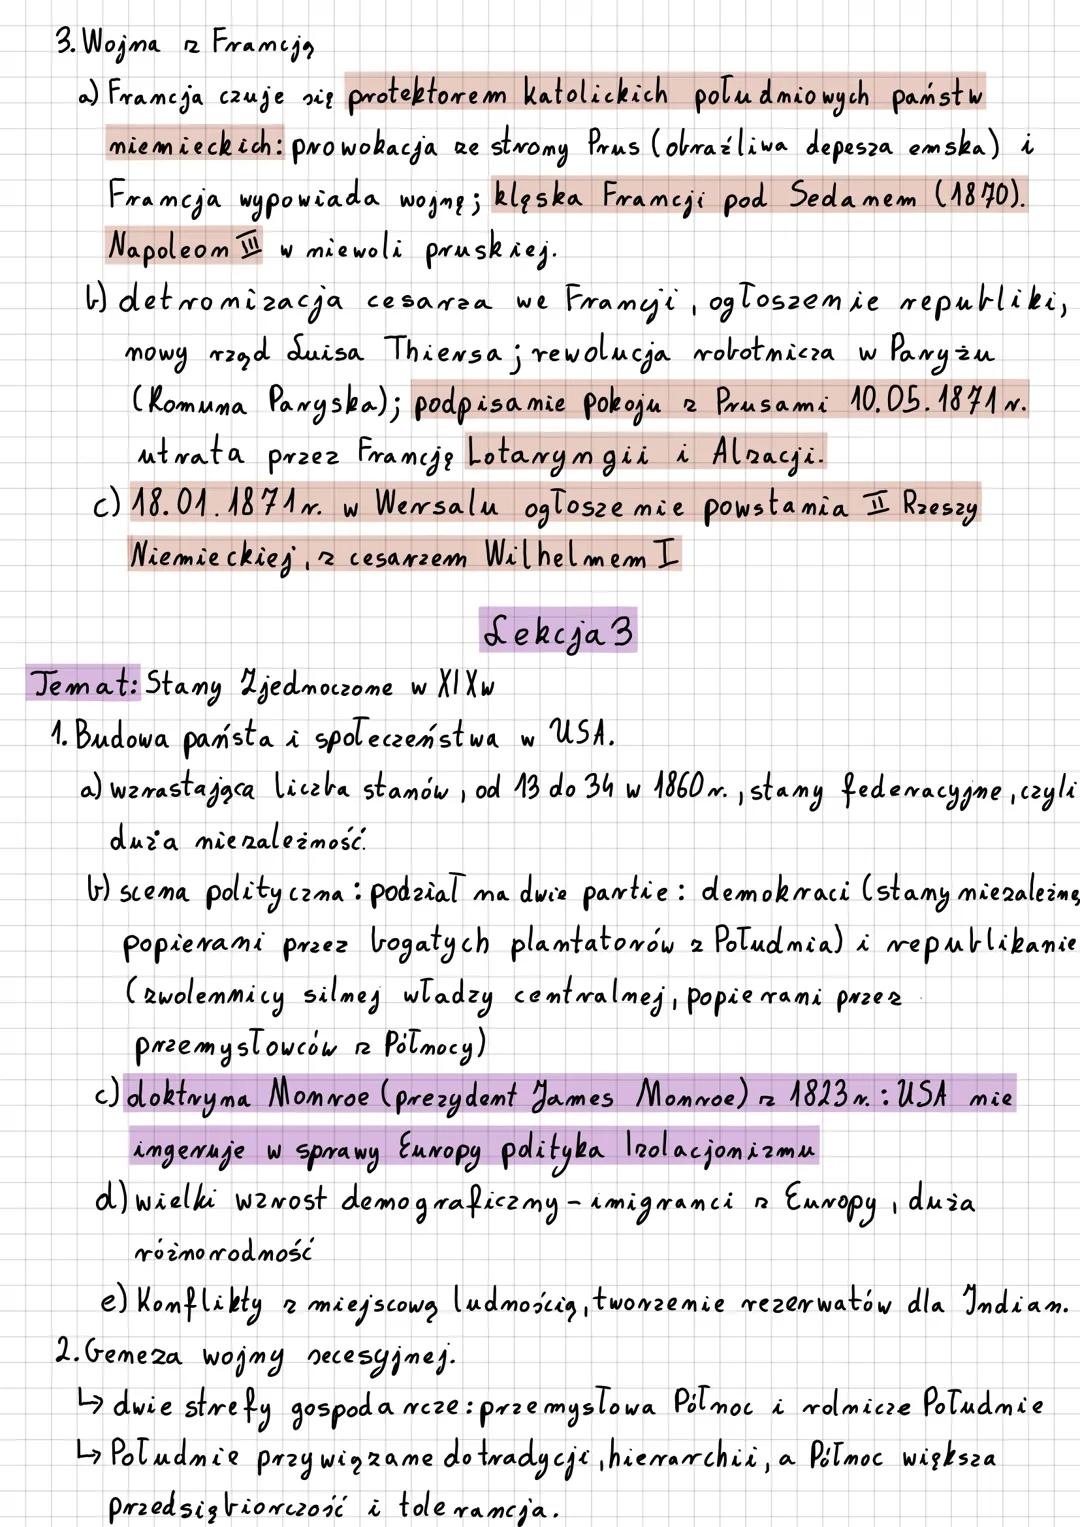 3. Wojna z Francją
a) Francja czuje się protektorem katolickich południowych państw
niemieckich: prowokacja ze strony Prus (obraźliwa depesza emska) i
Francja wypowiada wojnę; klęska Francji pod Sedanem (1870).
Napoleon III w niewoli pruskiej.
b) detronizacja cesarza we Francji, ogłoszenie republiki,
nowy rząd Luisa Thiersa; rewolucja robotnicza w Paryżu
(Komuna Paryska); podpisanie pokoju z Prusami 10.05.1871 r.
utrata przez Francję Lotaryngii i Alzacji.
c) 18.01.1871 r. w Wersalu ogłoszenie powstania II Rzeszy
Niemieckiej, z cesarzem Wilhelmem I
Lekcja 3
Temat: Stany Zjednoczone w XIXw
1. Budowa państa i społeczeństwa w USA.
a) wzrastająca liczba stanów, od 13 do 34 w 1860 r., stany federacyjne, czyli
duża niezależność.
b) scena polityczna: podział na dwie partie: demokraci (stany niezależne
popierani przez bogatych plantatorów z Południa) i republikanie
(zwolennicy silnej władzy centralnej, popierani przez
przemysłowców z Północy)
c) doktryna Monroe (prezydent James Monroe) z 1823 r.: USA nie
ingeruje w sprawy Europy polityka Izolacjonizmu
d) wielki wzrost demograficzny - imigranci z Europy, duża
różnorodność
e) Konflikty z miejscową ludnością, tworzenie rezerwatów dla Indian.
2. Geneza wojny secesyjnej.
↳ dwie strefy gospodarcze: przemysłowa Północ i rolnicze Południe
↳ Południe przywiązane do tradycji, hierarchii, a Północ większa
przedsiębiorczość i tolerancja.